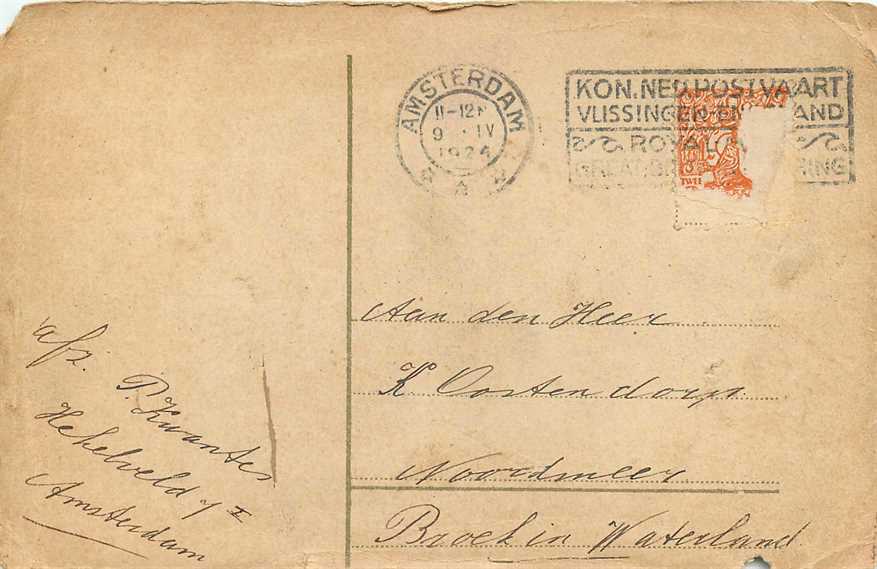 AMSTERDAM
11-12
9 IV
1924
KON. NED. POSTVAART
VLISSINGEN-EN AND
ROYAL
TWEE
afz. P. Kwantes
Hekelveld 7 II
Amsterdam
Aan den Heer
K. Oostendorp
Noordmeer
Broek in Waterland.